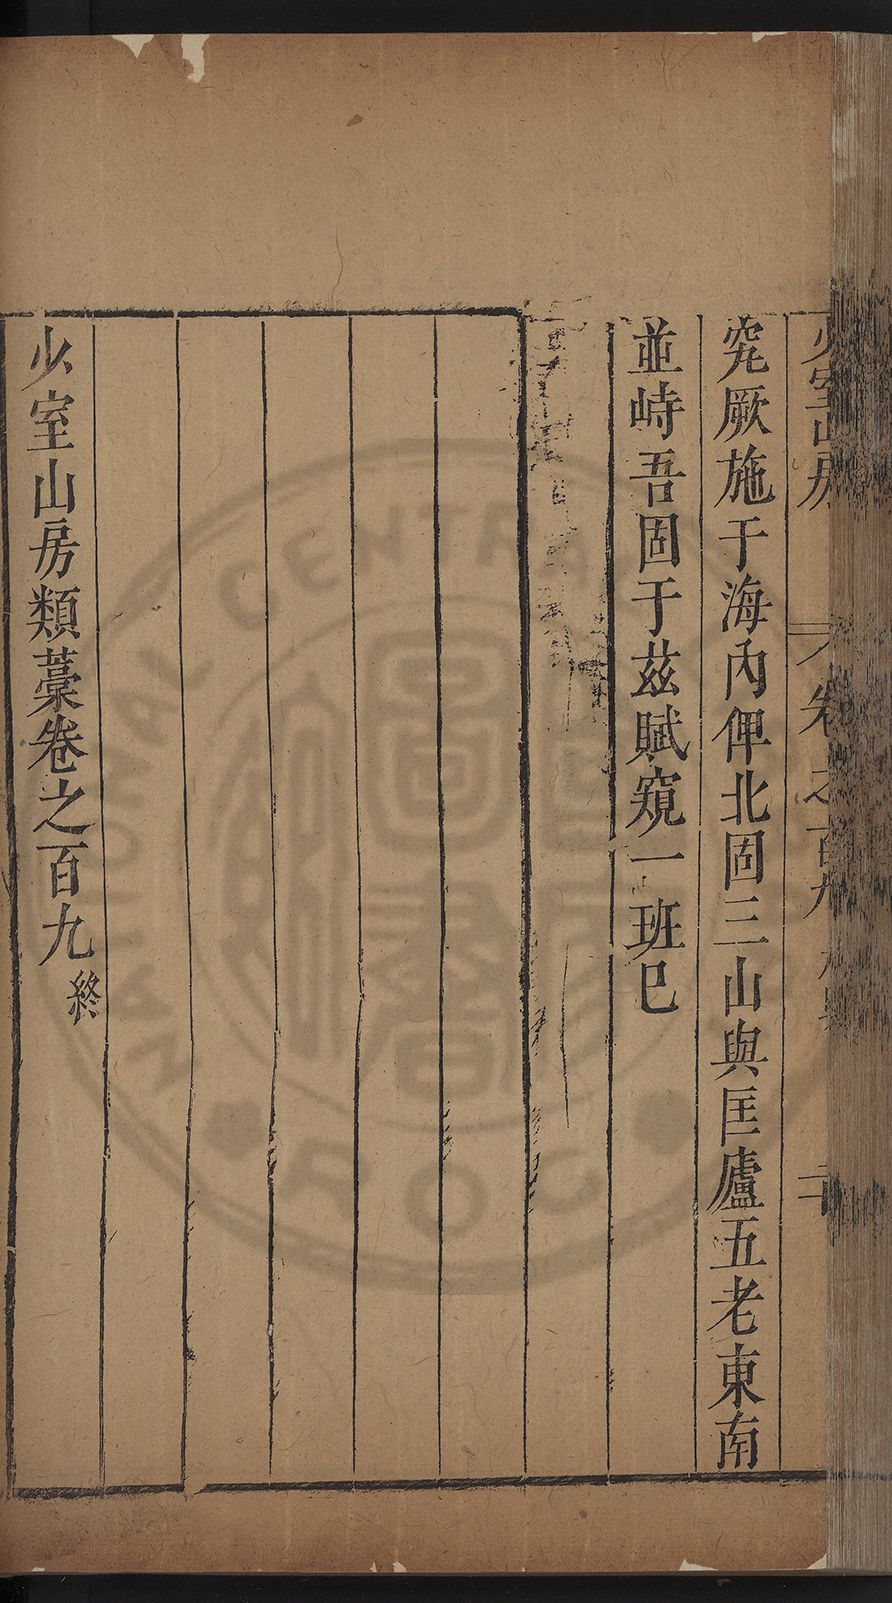 少室山房
卷之百九
究厥施于海內俾北固三山與匡廬五老東南
並峙吾固于茲賦窺一班巳
少室山房類藁卷之百九終